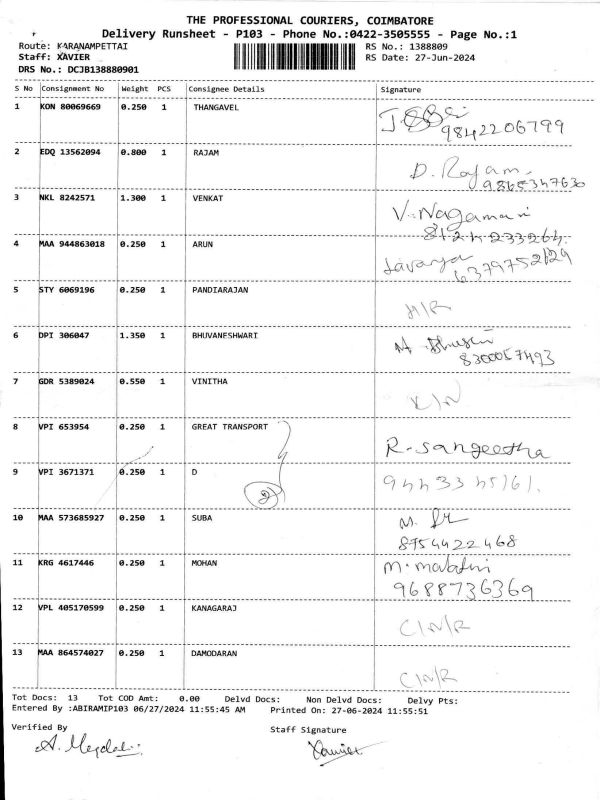 THE PROFESSIONAL COURIERS, COIMBATORE
Delivery Runsheet - P103 - Phone No.:0422-3505555 - Page No.:1
Route: KARANAMPETTAI RS No.: 1388809
Staff: XAVIER RS Date: 27-Jun-2024
DRS No.: DCJB138880901
S No Consignment No Weight PCS Consignee Details Signature
1 KON 80069669 0.250 1 THANGAVEL
9842206799
2 EDQ 13562094 0.800 1 RAJAM D. Rajam
9865347630
3 NKL 8242571 1.300 1 VENKAT V. Nagamani
8124233264
4 MAA 944863018 0.250 1 ARUN Lavanya
6379752129
5 STY 6069196 0.250 1 PANDIARAJAN
6 DPI 306047 1.350 1 BHUVANESHWARI
8300057493
7 GDR 5389024 0.550 1 VINITHA
8 VPI 653954 0.250 1 GREAT TRANSPORT R. Sangeetha
9 VPI 3671371 0.250 1 D 9443345161.
2
10 MAA 573685927 0.250 1 SUBA
8754422468
11 KRG 4617446 0.250 1 MOHAN M. Malathi
9688736369
12 VPL 405170599 0.250 1 KANAGARAJ C/N/R
13 MAA 864574027 0.250 1 DAMODARAN C/N/R
Tot Docs: 13 Tot COD Amt: 0.00 Delvd Docs: Non Delvd Docs: Delvy Pts:
Entered By :ABIRAMIP103 06/27/2024 11:55:45 AM Printed On: 27-06-2024 11:55:51
Verified By Staff Signature
Xavier